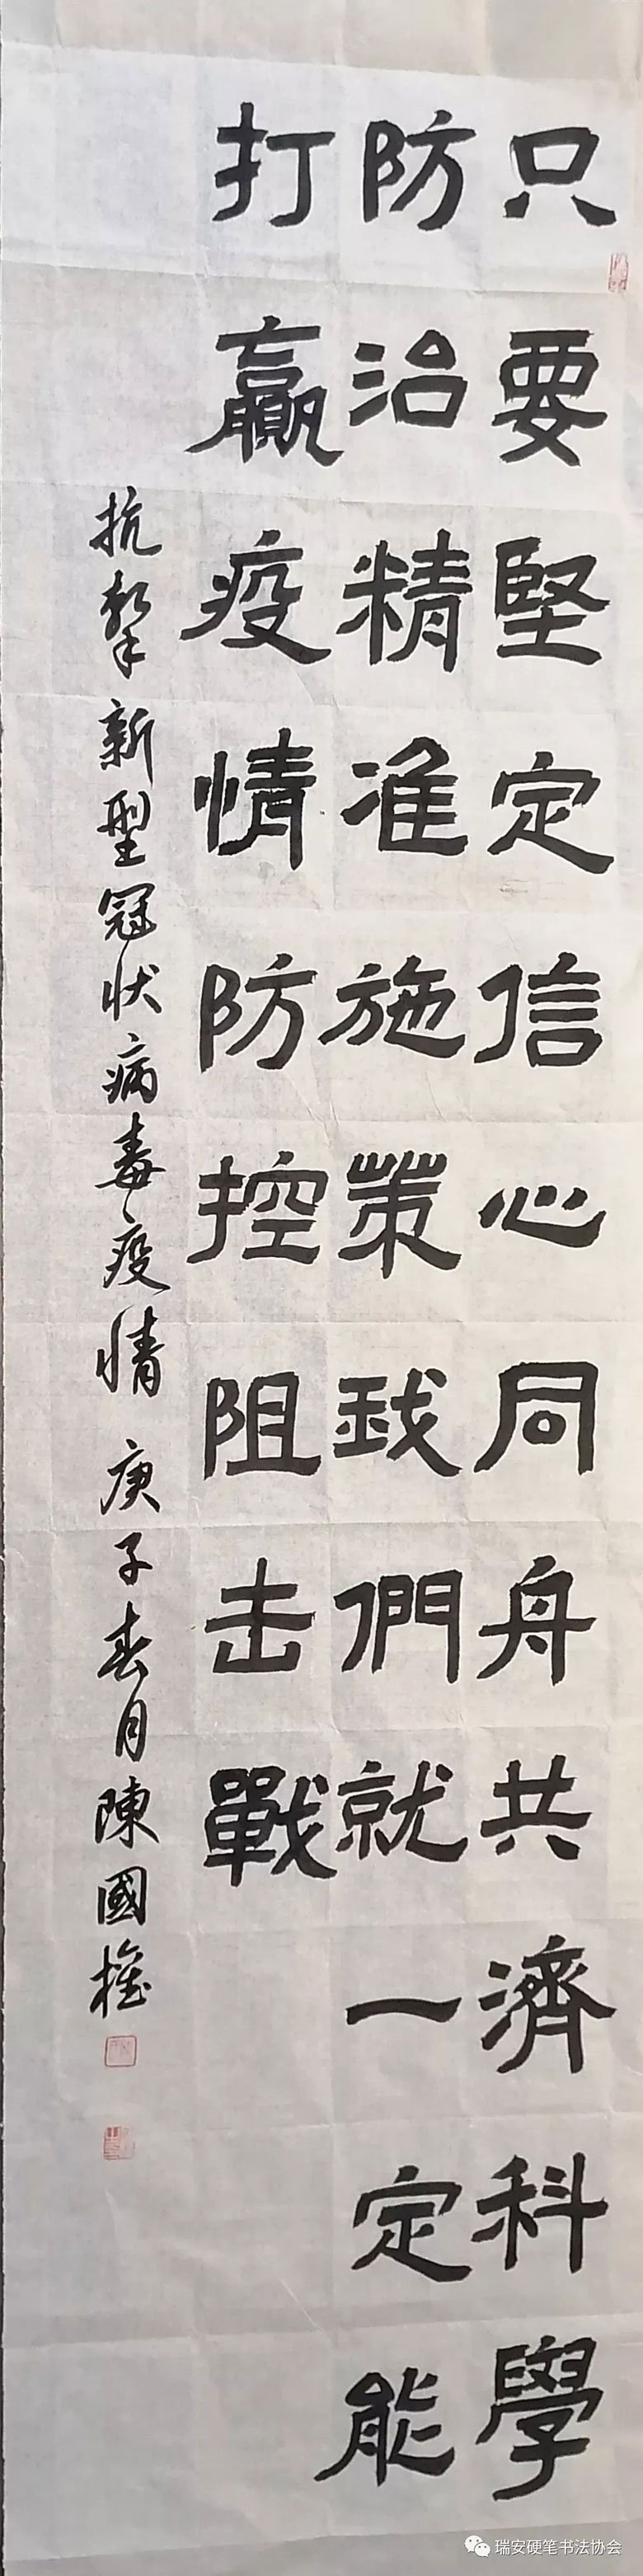 只要堅定信心同舟共濟科學
防治精准施策我們就一定能
打贏疫情防控阻击戰
抗擊新型冠状病毒疫情 庚子春月陳國權
瑞安硬笔书法协会